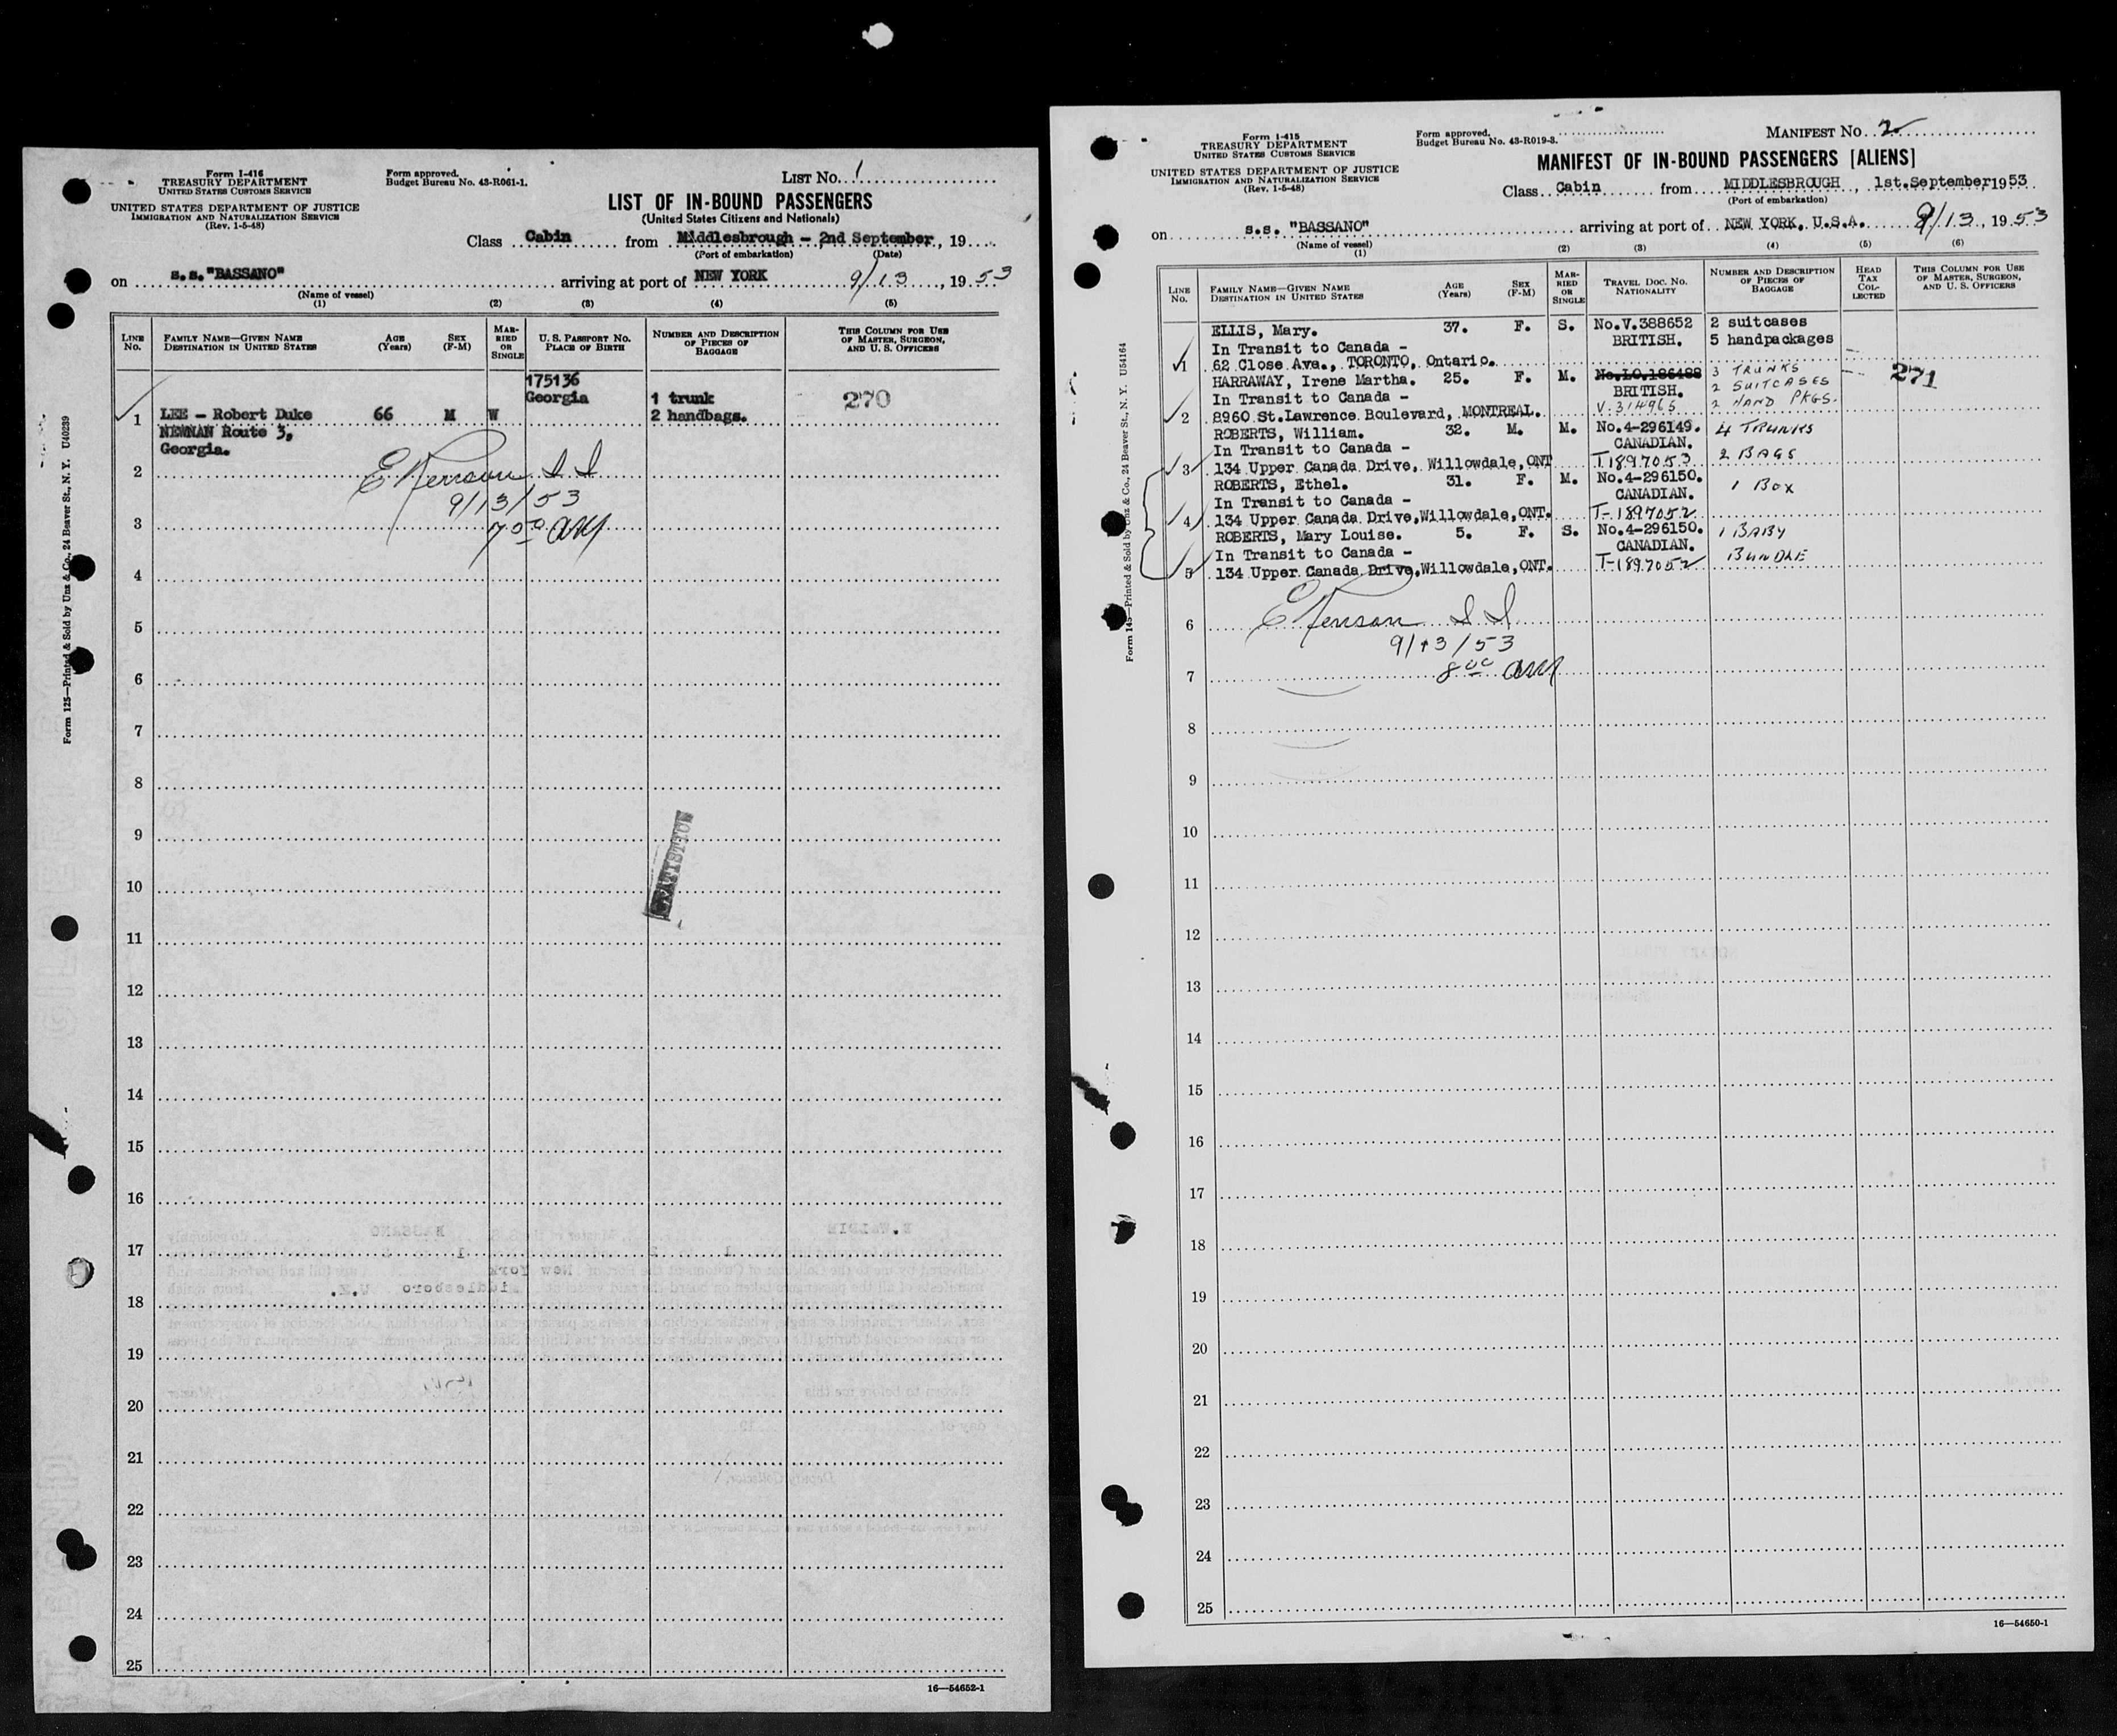 Form I-416
TREASURY DEPARTMENT
UNITED STATES CUSTOMS SERVICE
UNITED STATES DEPARTMENT OF JUSTICE
IMMIGRATION AND NATURALIZATION SERVICE
(Rev. 1-5-48)
Form approved.
Budget Bureau No. 43-R061-1.
LIST No. 1
LIST OF IN-BOUND PASSENGERS
(United States Citizens and Nationals)
Class Cabin from Middlesbrough - 2nd September, 19
(Port of embarkation) (Date)
on s.s. "BASSANO" arriving at port of NEW YORK 9/13, 1953
(Name of vessel)
(1) (2) (3) (4) (5)
LINE No.
FAMILY NAME—GIVEN NAME
DESTINATION IN UNITED STATES
AGE (Years)
SEX (F-M)
MARRIED OR SINGLE
U. S. PASSPORT NO.
PLACE OF BIRTH
NUMBER AND DESCRIPTION OF PIECES OF BAGGAGE
THIS COLUMN FOR USE OF MASTER, SURGEON, AND U. S. OFFICERS
175136
Georgia 1 trunk 270
1 LEE - Robert Duke 66 M W 2 handbags.
NEWNAN Route 3,
Georgia.
2
9/13/53
3 7 50 am
4
5
6
7
8
9
10
11
12
13
14
15
16
17
18
19
20
21
22
23
24
25
16—54652-1
Form 125—Printed & Sold by Unz & Co., 24 Beaver St., N. Y. U40239
Form I-415
TREASURY DEPARTMENT
UNITED STATES CUSTOMS SERVICE
UNITED STATES DEPARTMENT OF JUSTICE
IMMIGRATION AND NATURALIZATION SERVICE
(Rev. 1-5-48)
Form approved.
Budget Bureau No. 43-R019-3.
MANIFEST No. 2
MANIFEST OF IN-BOUND PASSENGERS [ALIENS]
Class Cabin from MIDDLESBROUGH, 1st.September, 1953
(Port of embarkation)
on s.s. "BASSANO" arriving at port of NEW YORK, U.S.A. 9/13, 1953
(Name of vessel)
(1) (2) (3) (4) (5) (6)
LINE No.
FAMILY NAME—GIVEN NAME
DESTINATION IN UNITED STATES
AGE (Years)
SEX (F-M)
MARRIED OR SINGLE
TRAVEL DOC. NO.
NATIONALITY
NUMBER AND DESCRIPTION OF PIECES OF BAGGAGE
HEAD TAX COLLECTED
THIS COLUMN FOR USE OF MASTER, SURGEON, AND U. S. OFFICERS
ELLIS, Mary. 37. F. S. No.V.388652 2 suitcases
In Transit to Canada - BRITISH. 5 handpackages
1 62 Close Ave., TORONTO, Ontario.
HARRAWAY, Irene Martha. 25. F. M. No.LO.186488 3 TRUNKS 271
In Transit to Canada - BRITISH. 2 SUITCASES
2 8960 St.Lawrence Boulevard, MONTREAL. V.314965 2 HAND PKGS.
ROBERTS, William. 32. M. M. No.4-296149. 4 TRUNKS
In Transit to Canada - CANADIAN.
3 134 Upper Canada Drive, Willowdale, ONT T.1897053 2 BAGS
ROBERTS, Ethel. 31. F. M. No.4-296150.
In Transit to Canada - CANADIAN. 1 BOX
4 134 Upper Canada Drive, Willowdale, ONT. T-1897052
ROBERTS, Mary Louise. 5. F. S. No.4-296150. 1 BABY
In Transit to Canada - CANADIAN. BUNDLE
5 134 Upper Canada Drive, Willowdale, ONT. T-1897052
6
9/13/53
7 8 00 am
8
9
10
11
12
13
14
15
16
17
18
19
20
21
22
23
24
25
16—54650-1
Form 145—Printed & Sold by Unz & Co., 24 Beaver St., N. Y. U54164